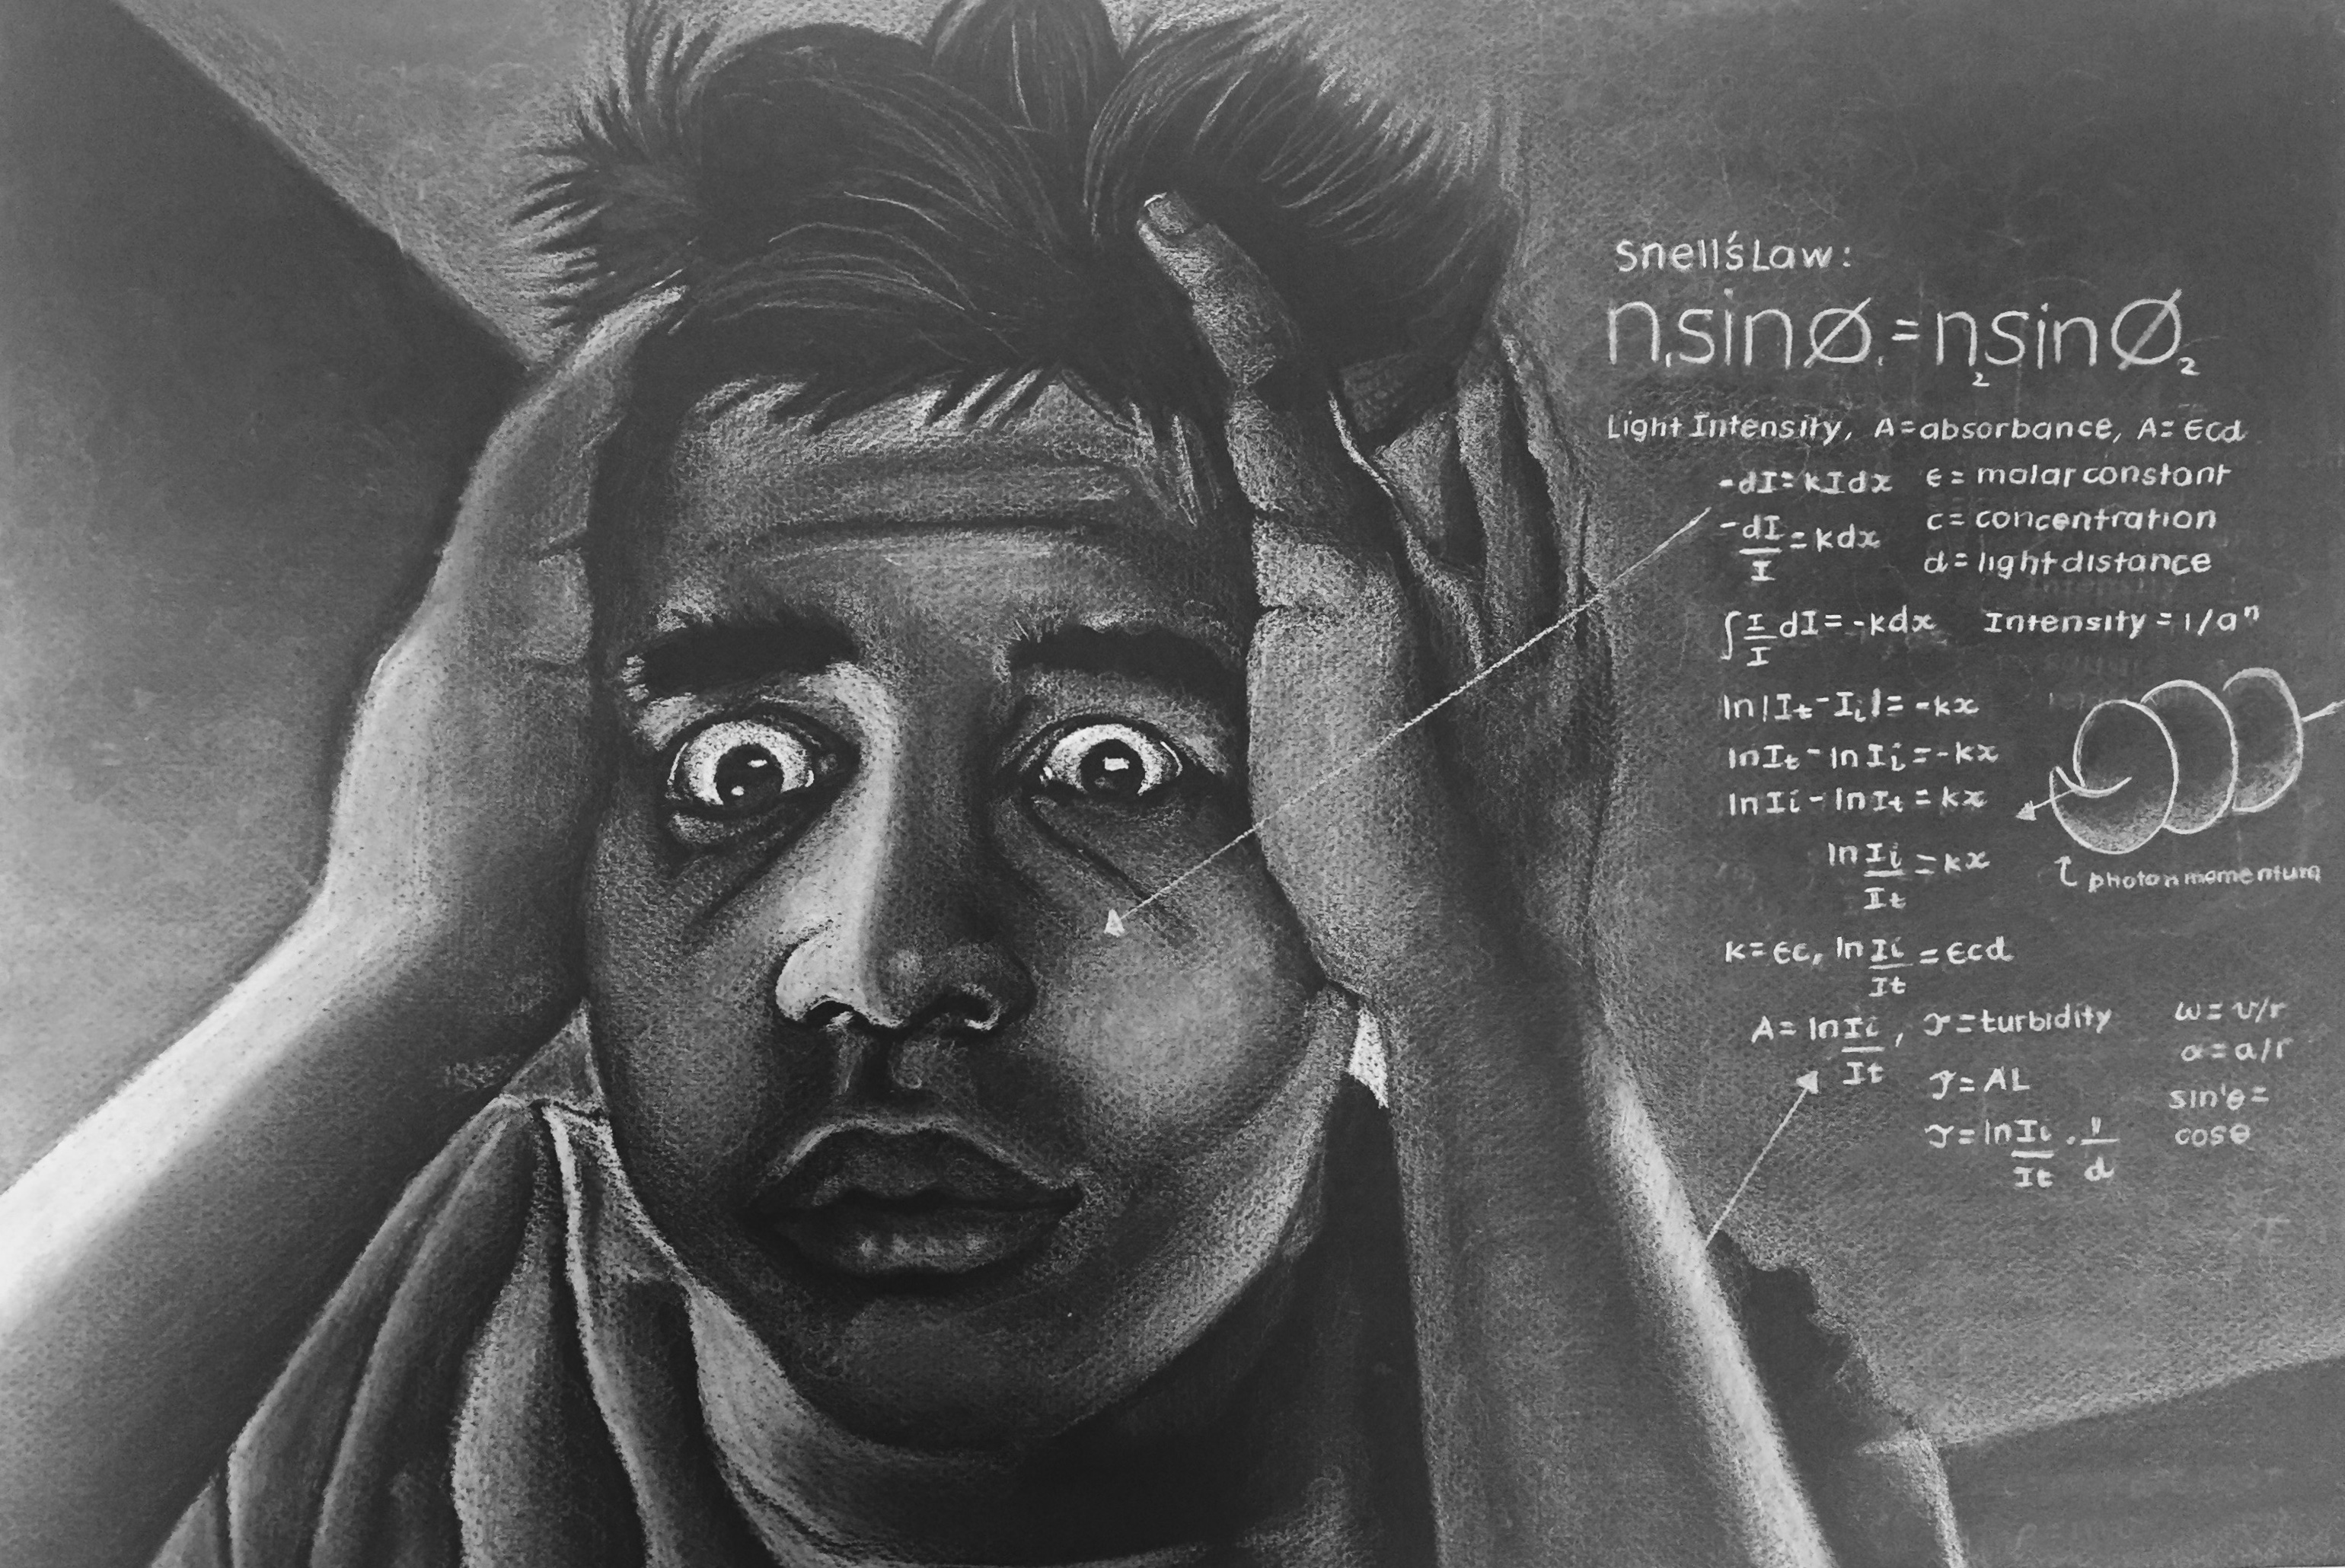 Snell's Law:
n₁sinØ₁=n₂sinØ₂
Light Intensity, A=absorbance, A=Ɛcd
-dI=kIdx ϵ=molar constant
-dI/I=kdx c=concentration
d=light distance
∫I/I dI=-kdx Intensity=1/aⁿ
ln|It-Ii|=-kx
lnIt-lnIi=-kx
lnIi-lnIt=kx
lnIi/It=kx
photon momentum
k=ϵc, lnIi/It=ϵcd
A=lnIi/It, 𝒯=turbidity ω=v/r
α=a/r
𝒯=AL sin'θ=
𝒯=lnIi/It·1/d cosθ